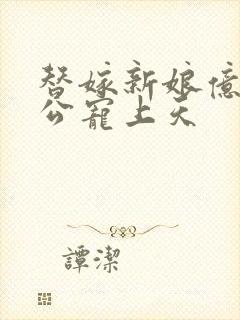 替嫁新娘億
公寵上天
譚潔